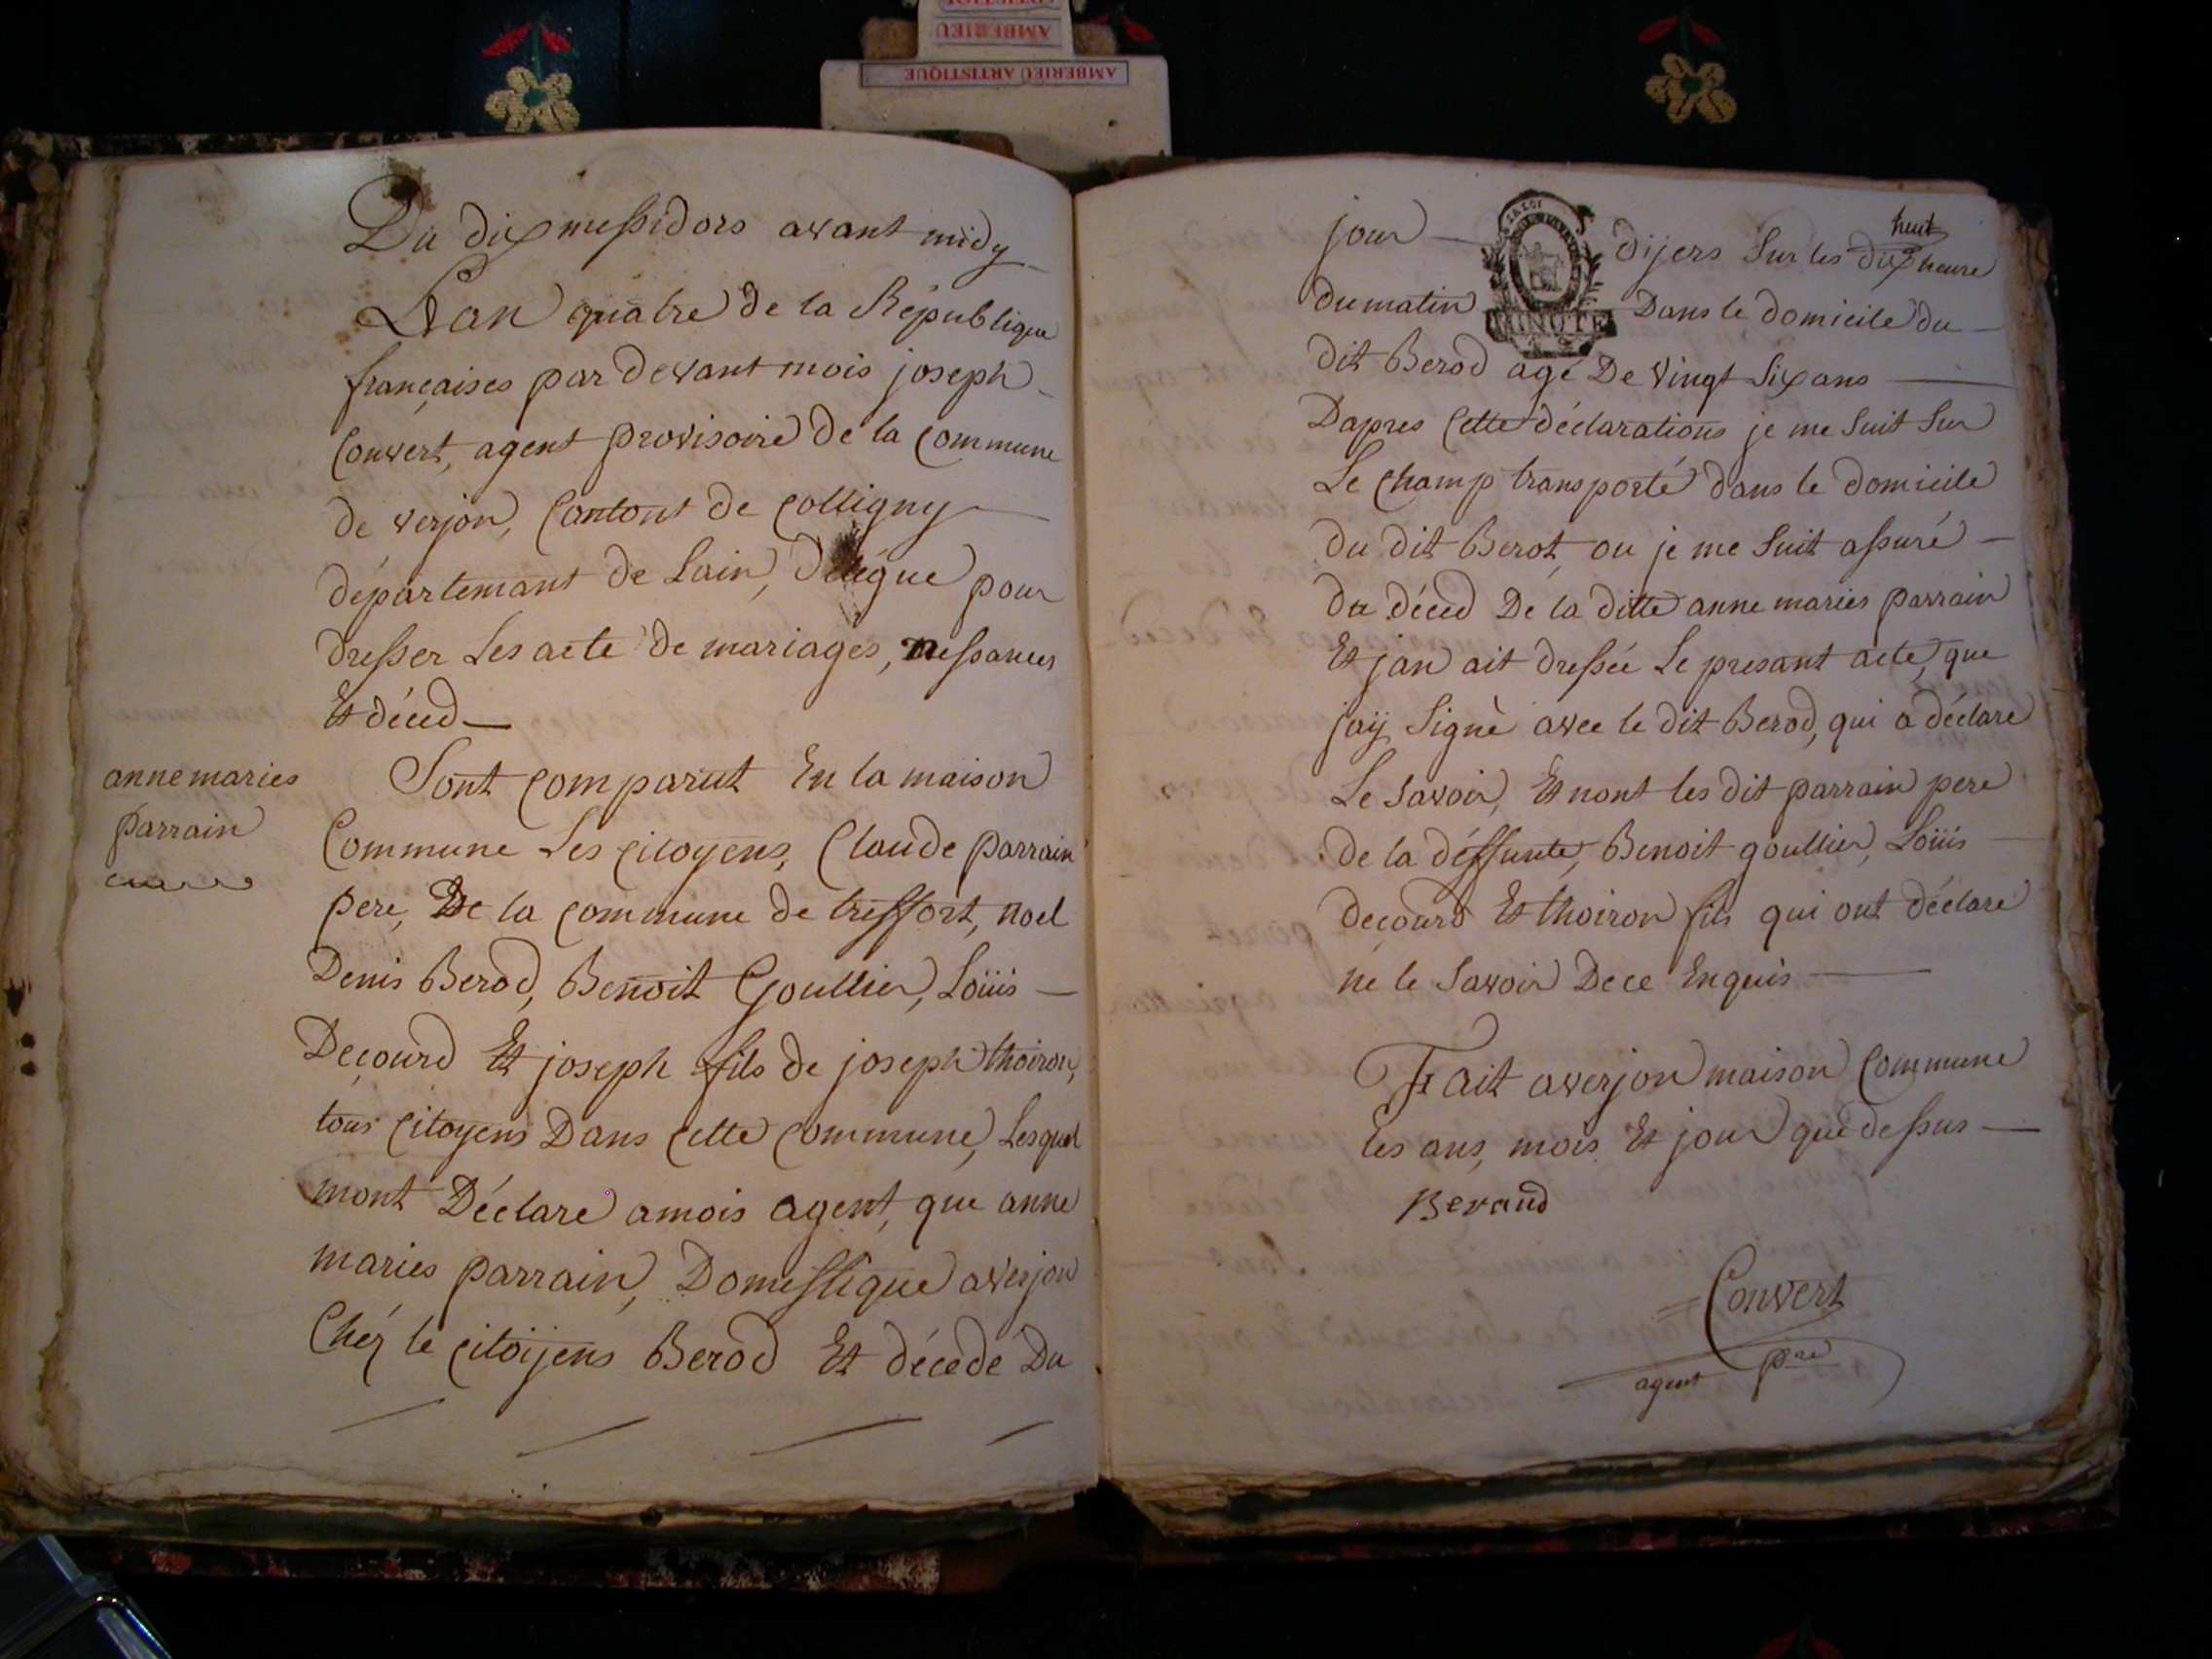 AMBERIEU
AMBERIEU ARTISTIQUE
Du dix messidors avant midy
Lan quatre de la République
françaises par devant mois joseph
Convert, agent provisoire de la commune
de verjon, Cantont de Colligny
départemant de Lain, délégué pour
dresser Les acte de mariages, nessances
Et déced
anne maries
parrain
Sont Comparut En la maison
Commune Les citoyens, Claude parrain
pere, De la commune de treffort, noel
Denis Berod, Benoit Goullier, Loüis
Decourd Et joseph fils de joseph thoiron,
tous citoyens Dans cette commune, Lesquel
mont Déclaré amois agent, que anne
maries parrain, Domestique averjon
Chéz le citoijens Berod Et décedé Du
jour dijers Sur les dix heure
huit
du matin Dans le domicile du
MINUTE
dit Berod agé De vingt Six ans
Dapres Cette déclarations je me Suit Sur
Le Champ transporté dans le domicile
du dit Berot, ou je me Suit assuré
du déced De la ditte anne maries parrain
Et jan ait dressée Le presant acte, que
jaÿ Signé avec le dit Berod, qui a déclaré
Le Savoir, Et nont les dit parrain pere
de la déffunte, Benoit goullier, Loüis
decourd Et thoiron fils qui ont déclaré
ne le Savoir De ce Enquis
Fait averjon maison Commune
les ans, mois Et jour que dessus
Beraud
Convert
agent pre